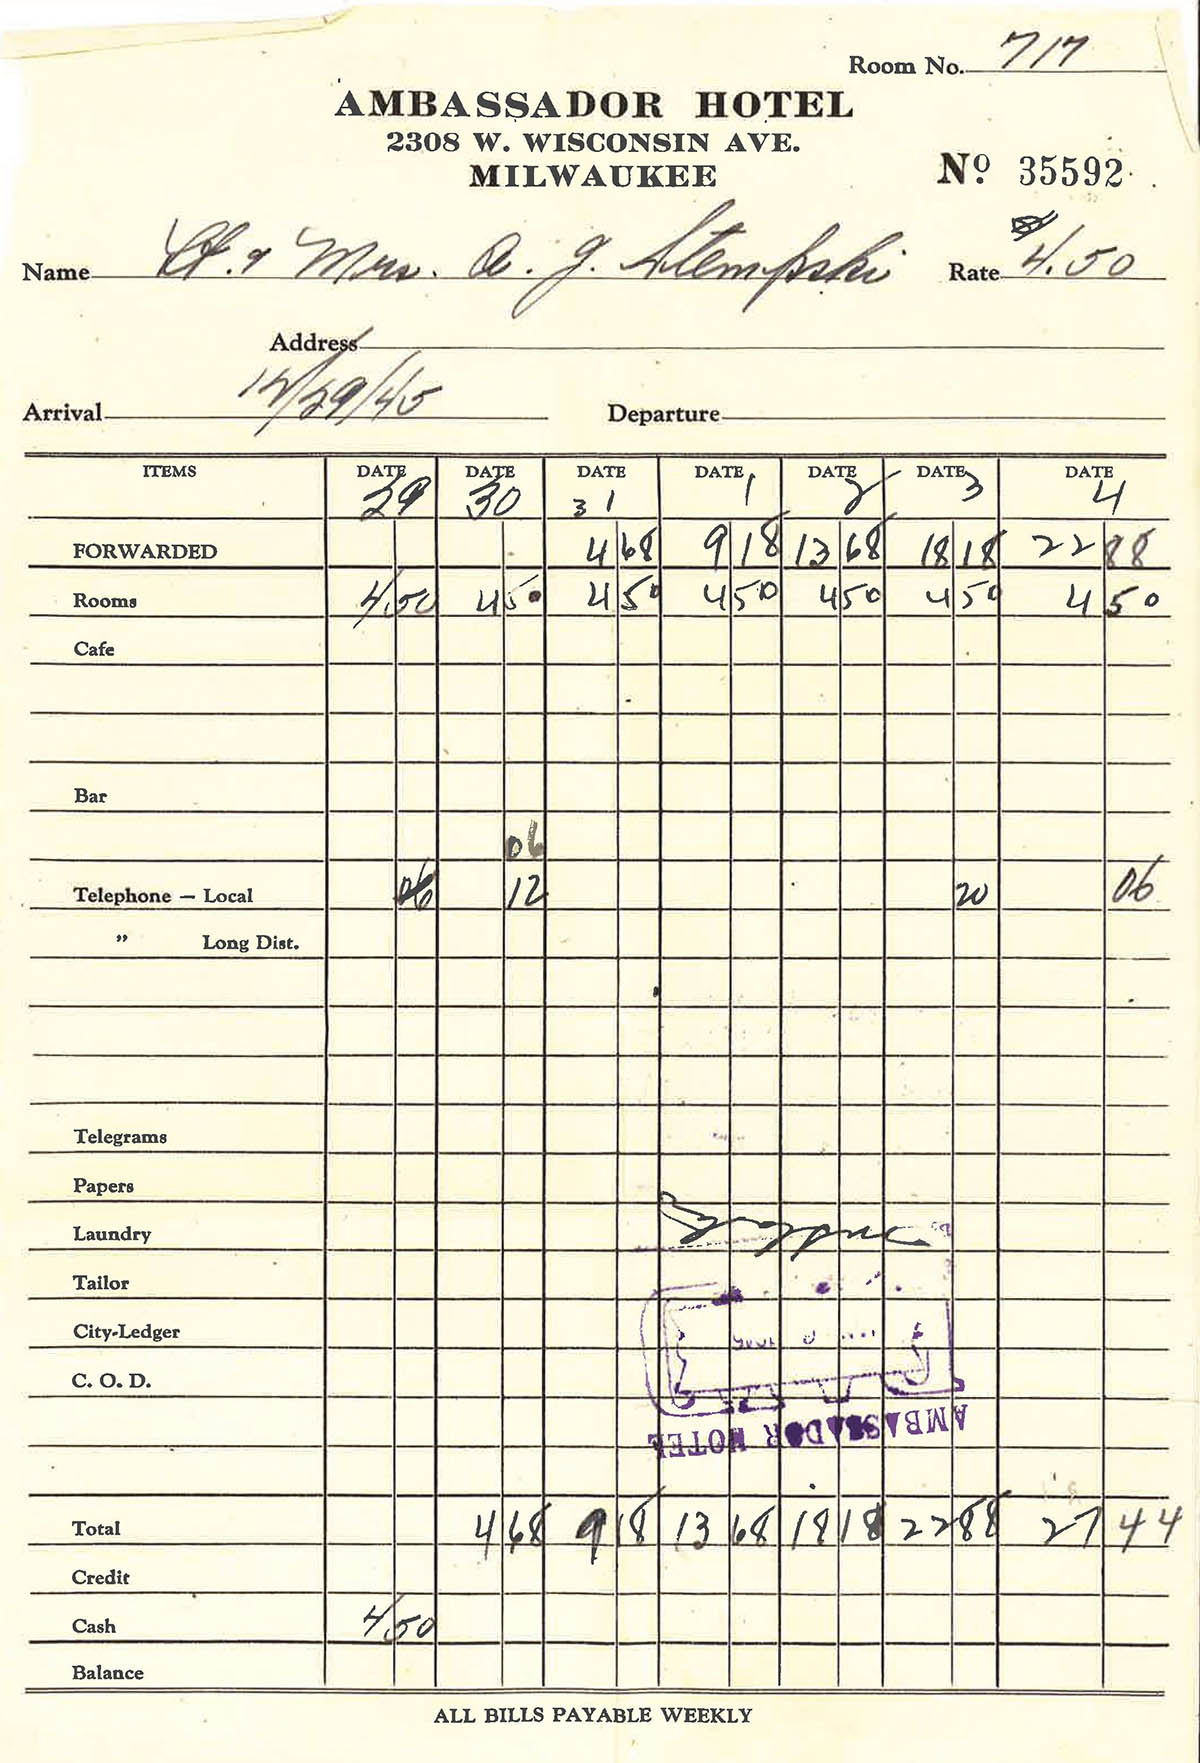 Room No. 717
AMBASSADOR HOTEL
2308 W. WISCONSIN AVE.
MILWAUKEE
Nº 35592
Name Lt. & Mrs. A. J. Stempski Rate 4.50
Address
Arrival 12/29/45 Departure
ITEMS DATE 29 DATE 30 DATE 31 DATE 1 DATE 2 DATE 3 DATE 4
FORWARDED 4 68 9 18 13 68 18 18 22 88
Rooms 4 50 4 50 4 50 4 50 4 50 4 50 4 50
Cafe
Bar
06
Telephone — Local 06 12 20 06
" Long Dist.
Telegrams
Papers
Laundry
Tailor
City-Ledger
C. O. D.
AMBASSADOR HOTEL
Total 4 68 9 18 13 68 18 18 22 88 27 44
Credit
Cash 4 50
Balance
ALL BILLS PAYABLE WEEKLY